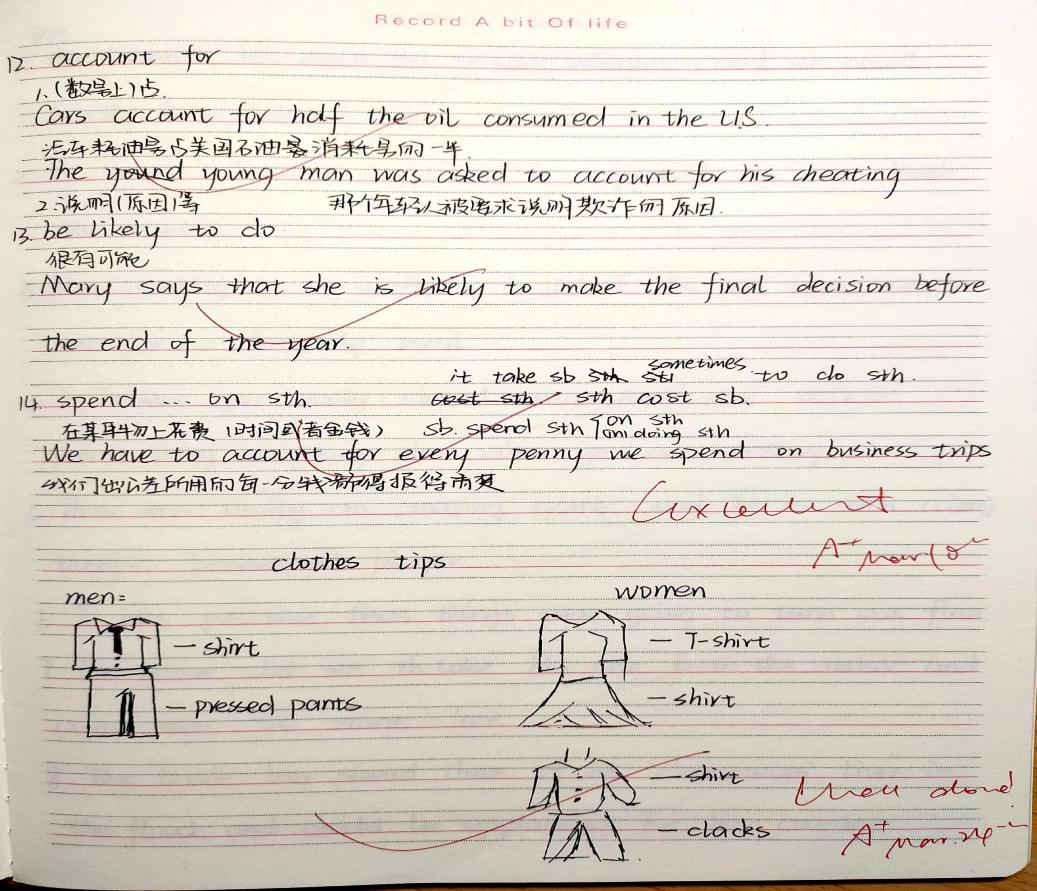 Record A bit Of life
12. account for
1. (数量上)占.
Cars account for half the oil consumed in the U.S.
汽车耗油量占美国石油量消耗量的一半.
The yound young man was asked to account for his cheating
2. 说明(原因)等 那个年轻人被要求说明欺诈的原因.
13. be likely to do
很有可能
Mary says that she is likely to make the final decision before
the end of the year.
sometimes
it take sb sth to do sth.
14. spend ... on sth. cost sth sth cost sb.
在某事物上花费(时间或者金钱) sb. spend sth on sth
doing sth
We have to account for every penny we spend on business trips
我们出公差所用的每一分钱都得报得清楚
Excellent
A+
clothes tips
men: women
shirt T-shirt
pressed pants shirt
shirt
Well done!
clacks
A+